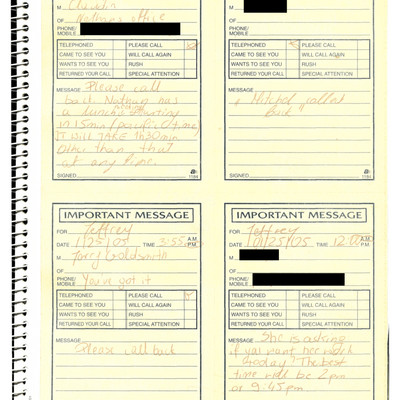 M
OF
PHONE/
MOBILE
TELEPHONED PLEASE CALL
CAME TO SEE YOU WILL CALL AGAIN
WANTS TO SEE YOU RUSH
RETURNED YOUR CALL SPECIAL ATTENTION
MESSAGE Please call
back. Nathan has
a lunch starting
in 15min (pacific time)
IT WILL TAKE 1h30min
Other than that
at any time.
SIGNED 1184
M
OF
PHONE/
MOBILE
TELEPHONED PLEASE CALL
CAME TO SEE YOU WILL CALL AGAIN
WANTS TO SEE YOU RUSH
RETURNED YOUR CALL SPECIAL ATTENTION
MESSAGE
Mitchel called
back"
SIGNED 1184
IMPORTANT MESSAGE
FOR Jeffrey
DATE 1/25/05 TIME 3:55 A.M. P.M.
M Terry Goldsmith
OF
PHONE/
MOBILE You've got it
TELEPHONED PLEASE CALL
CAME TO SEE YOU WILL CALL AGAIN
WANTS TO SEE YOU RUSH
RETURNED YOUR CALL SPECIAL ATTENTION
MESSAGE
Please call back
IMPORTANT MESSAGE
FOR Jeffrey
DATE 01/25/05 TIME 12:00 A.M. P.M.
M
OF
PHONE/
MOBILE
TELEPHONED PLEASE CALL
CAME TO SEE YOU WILL CALL AGAIN
WANTS TO SEE YOU RUSH
RETURNED YOUR CALL SPECIAL ATTENTION
MESSAGE She is asking
if you want her
today? The best
time will be 2pm
or 9.45pm